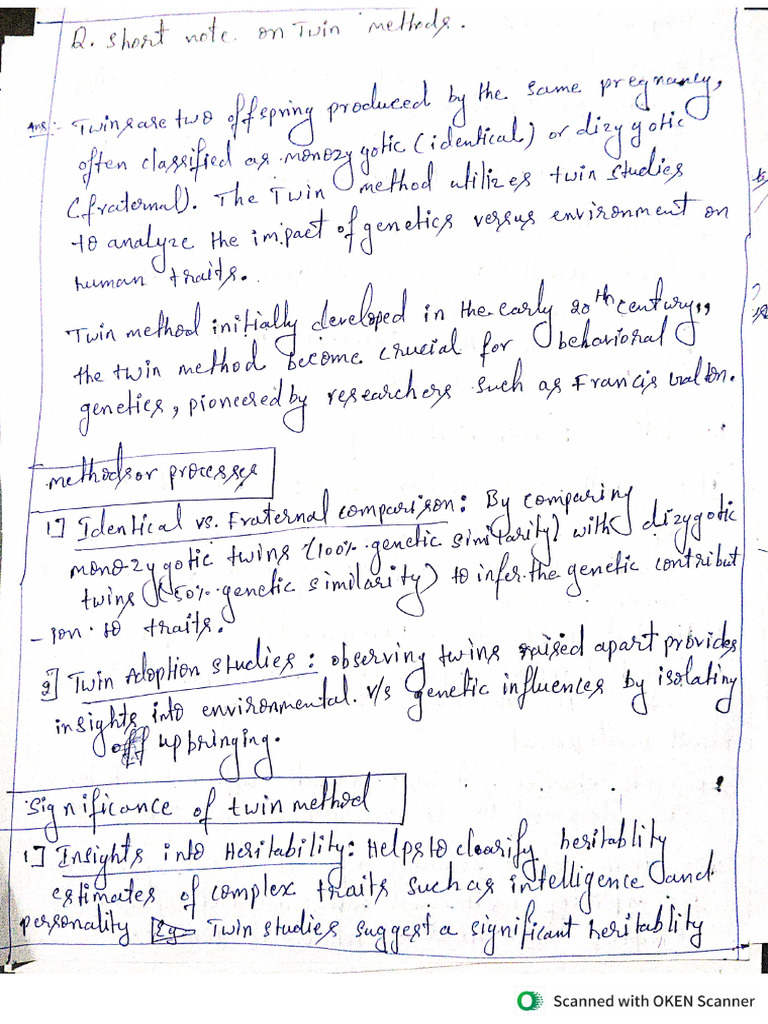 Q. Short note on Twin methods.
Ans:- Twins are two offspring produced by the same pregnancy,
often classified as monozygotic (identical) or dizygotic
(fraternal). The Twin method utilizes twin studies
to analyze the impact of genetics versus environment on
human traits.
Twin method initially developed in the early 20th century,,
the twin method become crucial for behavioral
genetics, pioneered by researchers such as Francis Galton.
methods or processes
1] Identical vs. Fraternal comparison: By comparing
monozygotic twins (100% genetic similarity) with dizygotic
twins (50% genetic similarity) to infer the genetic contribut
-ion to traits.
2] Twin Adoption studies: observing twins raised apart provides
insights into environmental v/s genetic influences by isolating
upbringing.
Significance of twin method
1] Insights into Heritability: Helps to clearify heritablity
estimates of complex traits such as intelligence and
personality Eg- Twin studies suggest a significant heritablity
Scanned with OKEN Scanner